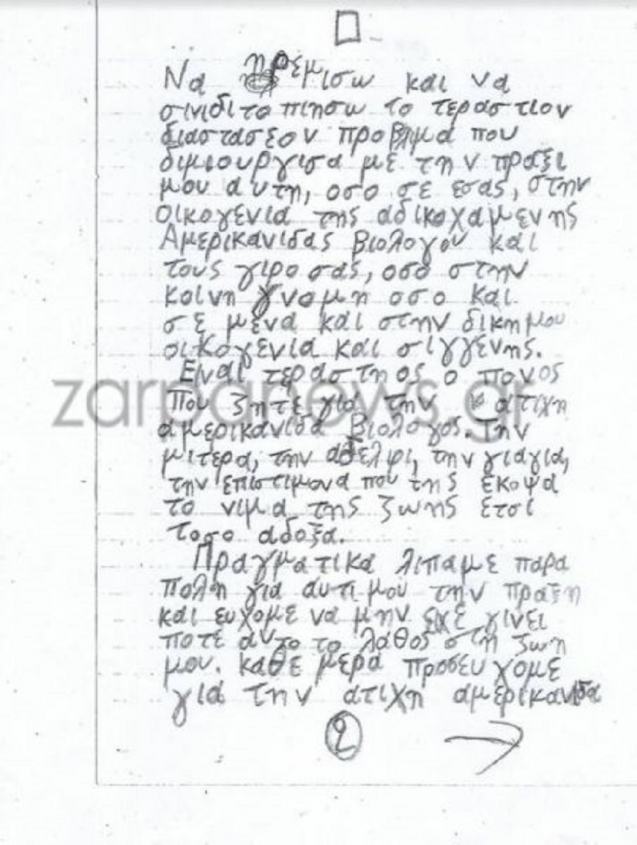 Να ηρεμισω και να
σινιδιτοπιησω το τεραστιον
διαστασεον προβλμα που
διμιουργισα με την πραξι
μου αυτη, οσο σε εσας, στην
οικογενια της αδικοχαμενης
Αμερικανιδας βιολογου και
τους γιρο σας, οσο στην
κοινη γνομη οσο και
σε μενα και στην δικη μου
οικογενια και σιγγενης.
Ειναι τεραστηος ο πονος
που ζητε για την ατιχη
αμερικανιδα βιολογος. Την
μιτερα, την αδελφι, την γιαγια,
την επιστιμονα που της εκοψα
το νιμα της ζωης ετσι
τοσο αδοξα.
Πραγματικα λιπαμε παρα
πολη για αυτι μου την πραξη
και ευχομε να μην ειχε γινει
ποτε αυτο το λαθος στη ζωη
μου. καθε μερα προσευχομε
για την ατιχη αμερικανιδα
2
zarpanews.gr